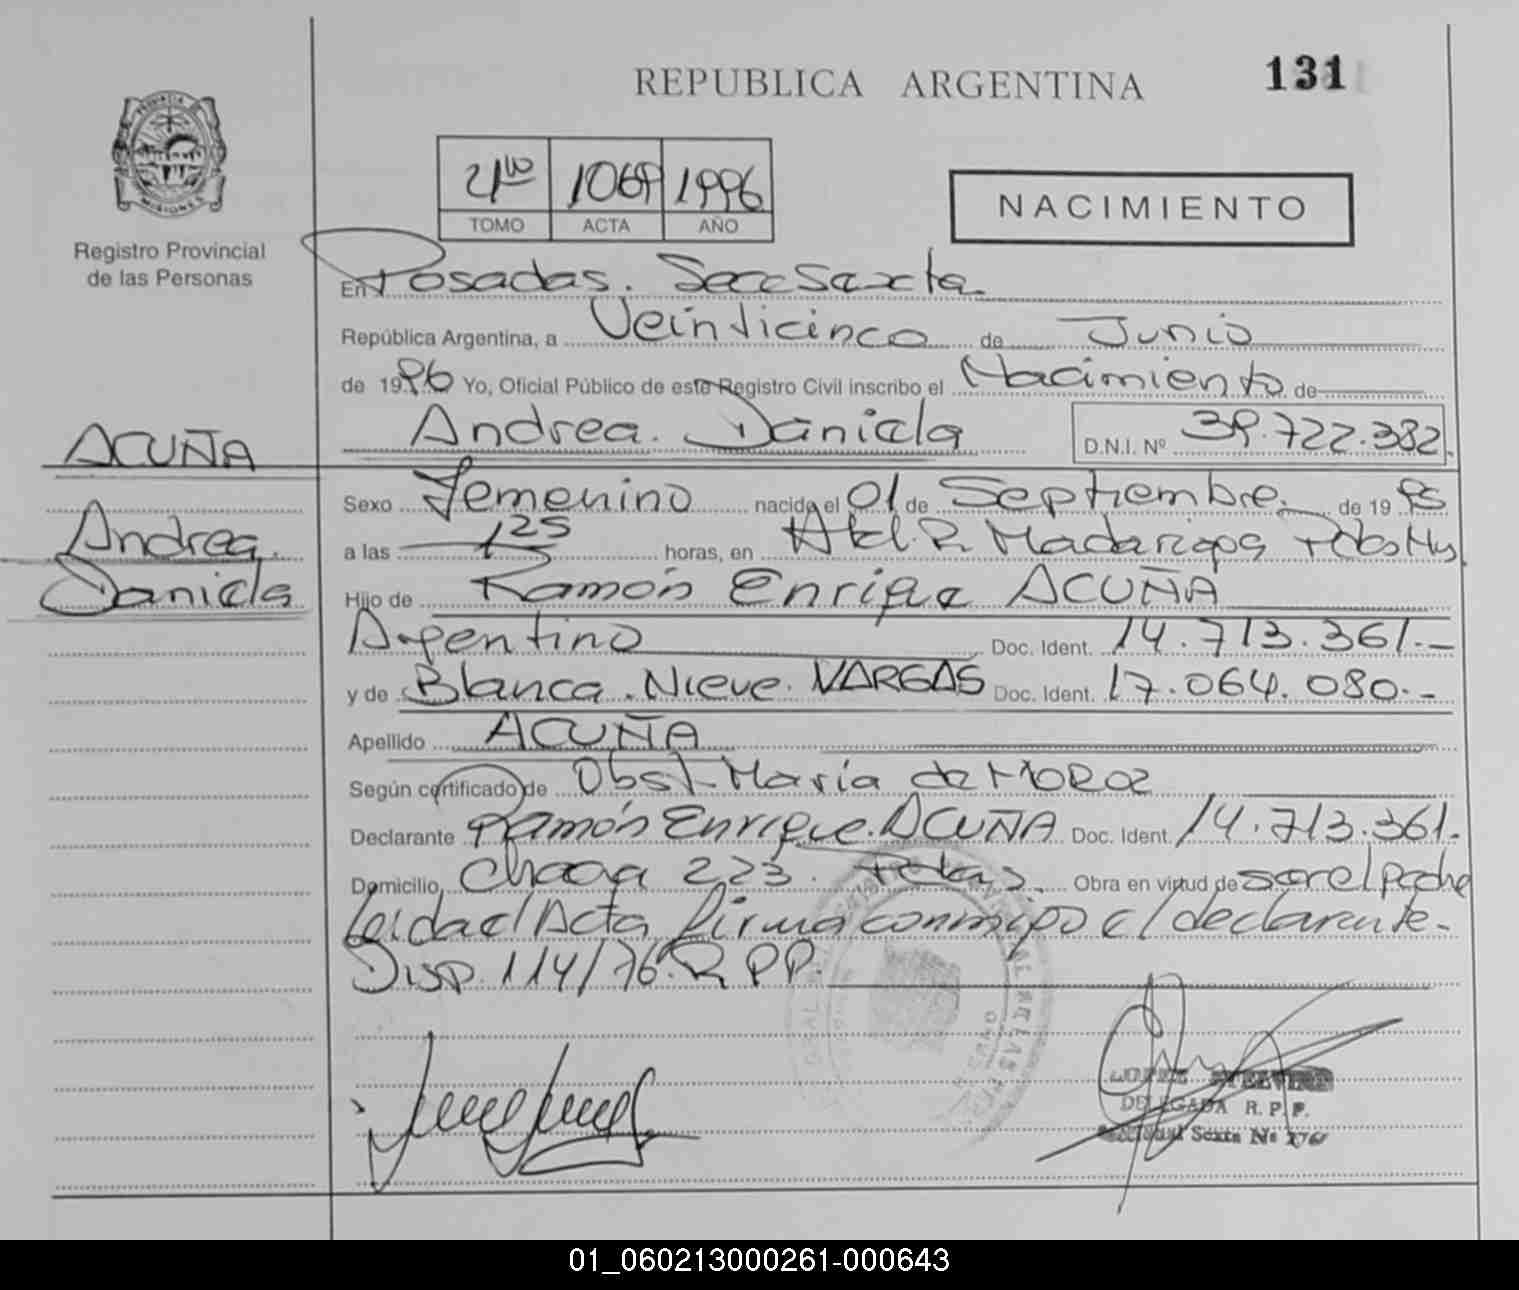 REPUBLICA ARGENTINA
131
PROVINCIA
MISIONES
Registro Provincial
de las Personas
1069 1996
TOMO ACTA AÑO
NACIMIENTO
En Posadas. Secc Sexta
República Argentina, a Veinticinco de Junio
de 1996 Yo, Oficial Público de este Registro Civil inscribo el Nacimiento de
Andrea. Daniela D.N.I. Nº 39.722.382.
ACUÑA
Andrea.
Daniela
Sexo Femenino nacido el 01 de Septiembre. de 19 95
a las 125 horas, en R. Madariaga
Hijo de Ramón Enrique ACUÑA
Argentino Doc. Ident. 14.713.361.-
y de Blanca. Nieve. VARGAS Doc. Ident. 17.064.080.-
Apellido ACUÑA
Según certificado de Obst. María de MOROZ
Declarante Ramón Enrique. ACUÑA Doc. Ident. 14.713.361.
Domicilio 223. Pdas. Obra en virtud de ser el padre
Leida el Acta firma conmigo el declarante.-
Disp. 114/76. R.P.P.
DELEGADA R. P. P.
Seccional Sexta Nº
01_060213000261-000643